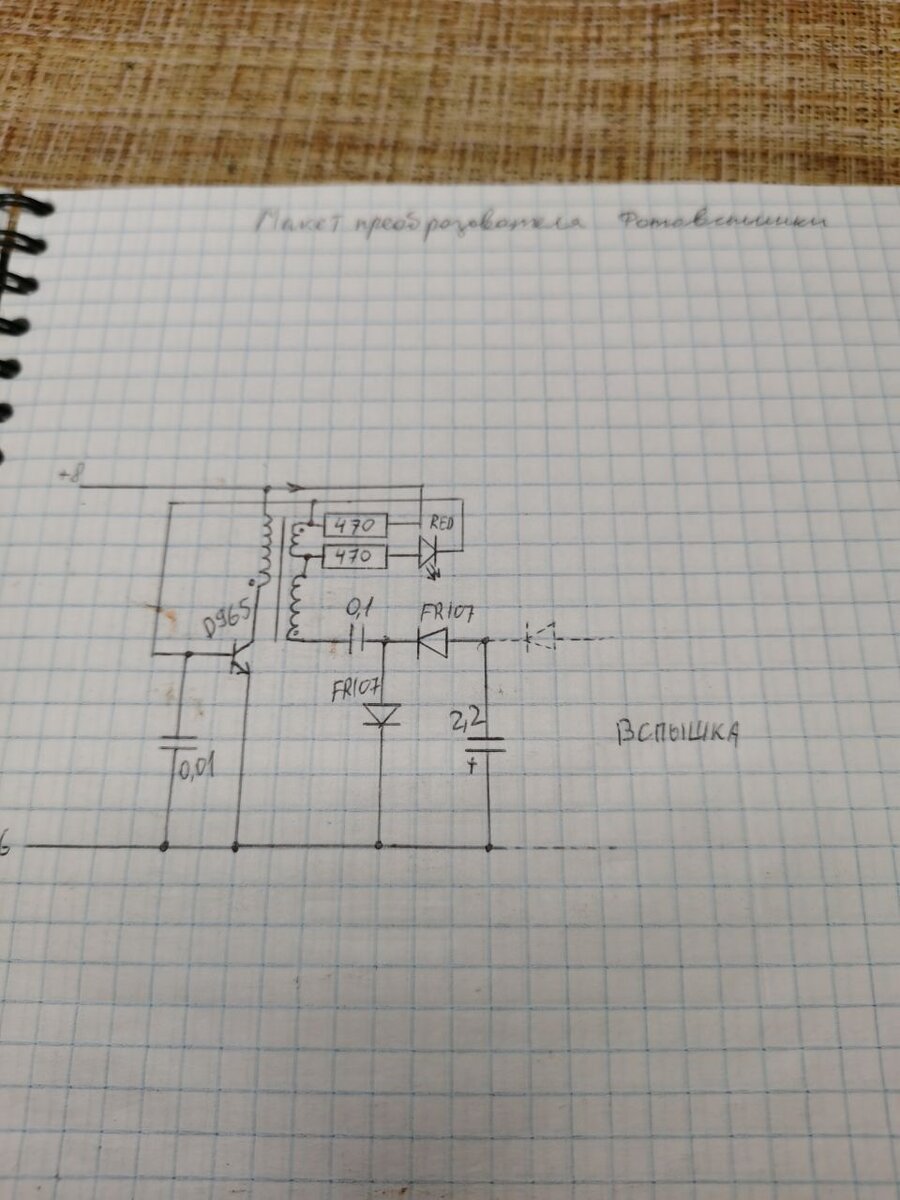 Макет преобразователя Фотовспышки
+8
470
RED
470
D965
0,1
FR107
FR107
2,2
ВСПЫШКА
0,01
+